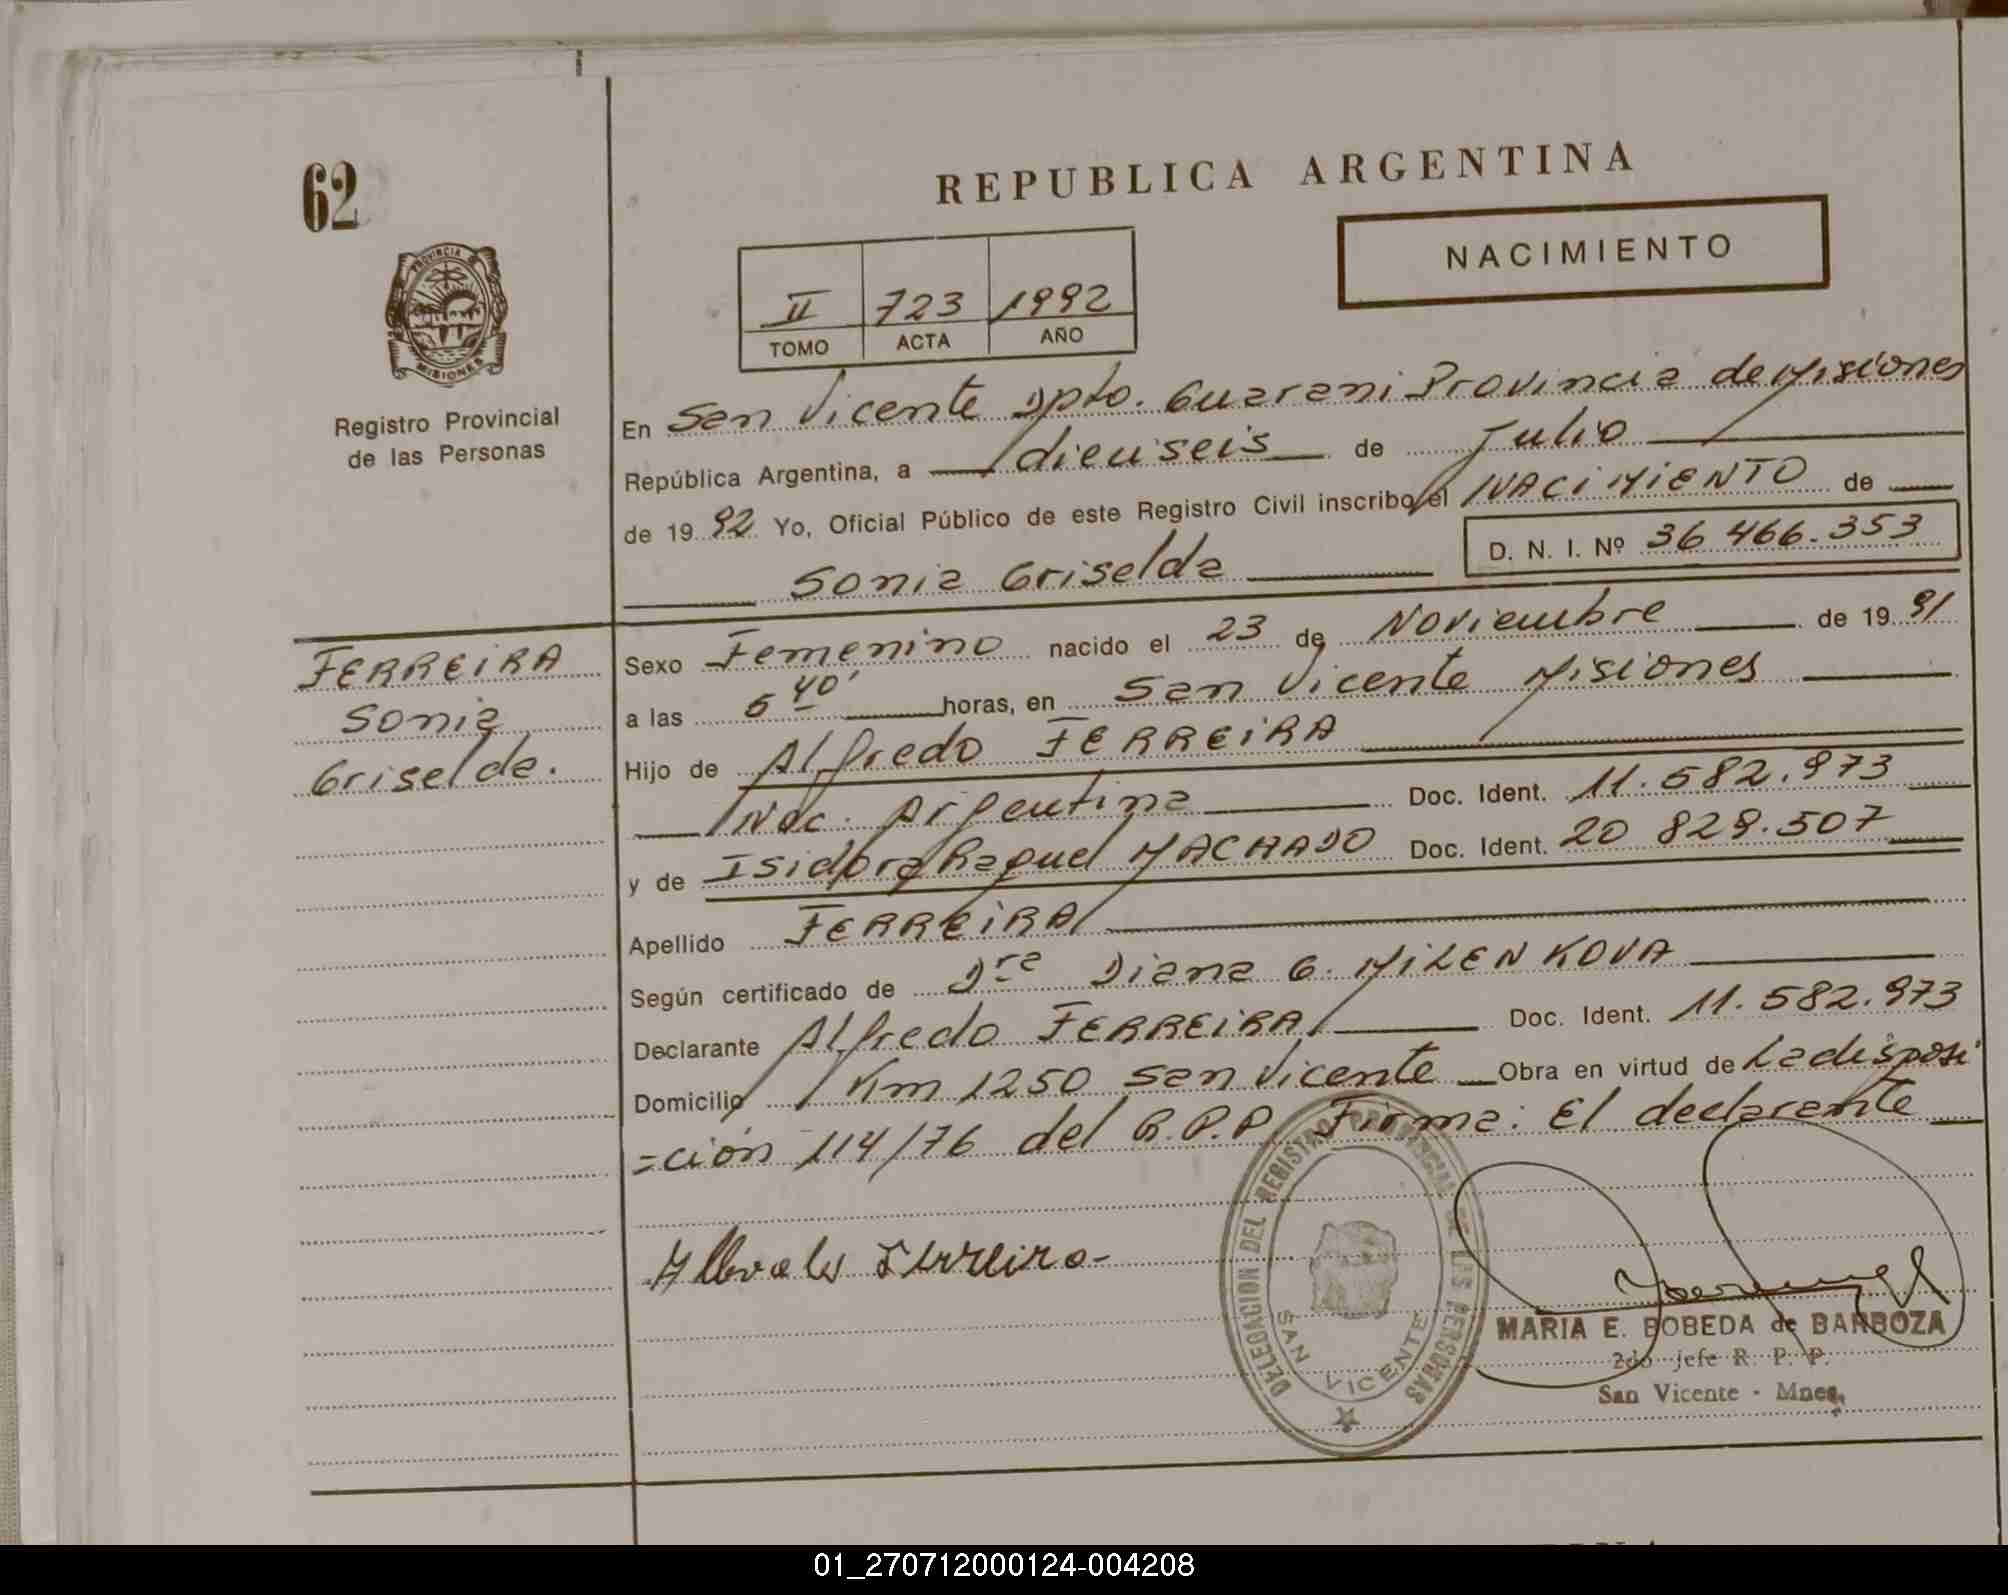 62
PROVINCIA DE
MISIONES
Registro Provincial
de las Personas
REPUBLICA ARGENTINA
NACIMIENTO
II 723 1992
TOMO ACTA AÑO
En San Vicente Dpto. Guarani Provincia de Misiones
República Argentina, a dieciseis de Julio
de 19 92 Yo, Oficial Público de este Registro Civil inscribo el NACIMIENTO de
Sonia Griselda D. N. I. Nº 36 466.353
FERREIRA
Sonia
Griselda.
Sexo Femenino nacido el 23 de Noviembre de 19 91
a las 5 40' horas, en San Vicente Misiones
Hijo de Alfredo FERREIRA
Nac. Argentina Doc. Ident. 11.582.973
y de Isidora Raquel MACHADO Doc. Ident. 20 829.507
Apellido FERREIRA
Según certificado de Dra Diana G. MILENKOVA
Declarante Alfredo FERREIRA Doc. Ident. 11.582.973
Domicilio Km 1250 San Vicente Obra en virtud de La disposi
=ción 114/76 del R.P.P. Firma: El declarante
Ferreira-
DELEGACION DEL REGISTRO PROVINCIAL DE LAS PERSONAS
SAN VICENTE
MARIA E. BOBEDA de BARBOZA
2do jefe R. P. P.
San Vicente - Mnes.
01_270712000124-004208